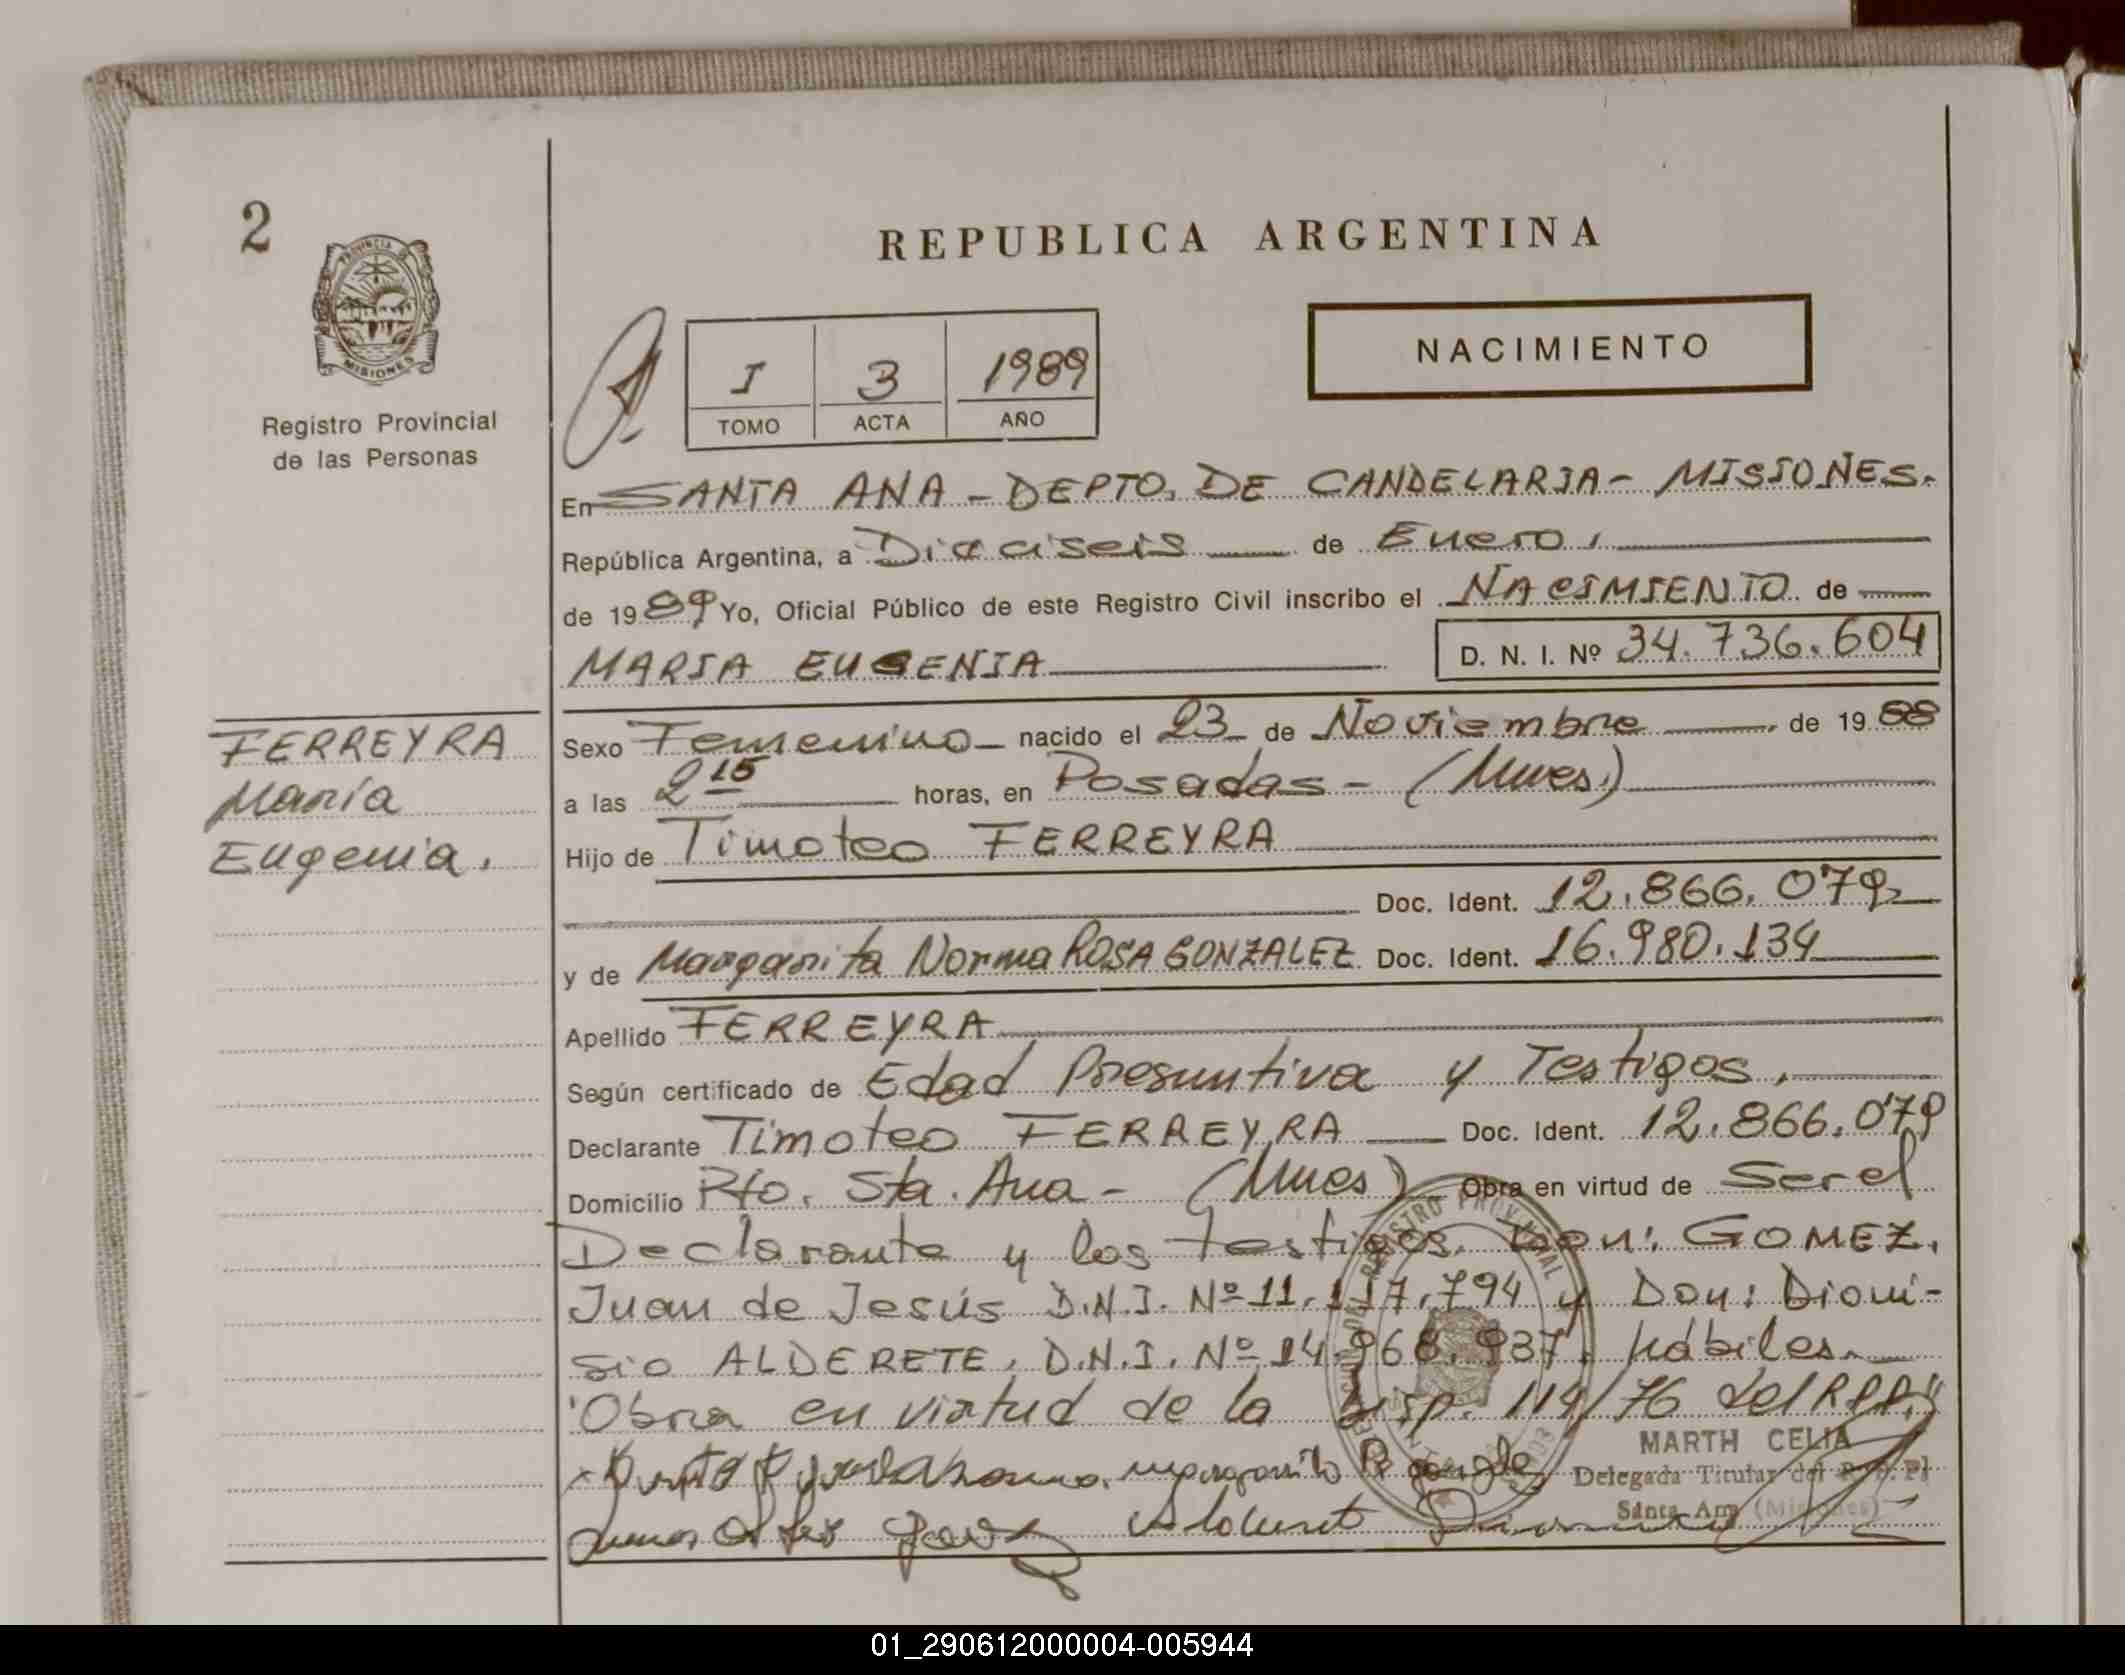 2
PROVINCIA DE
MISIONES
Registro Provincial
de las Personas
REPUBLICA ARGENTINA
I 3 1989
TOMO ACTA AÑO
NACIMIENTO
En SANTA ANA - DEPTO. DE CANDELARIA - MISIONES.
República Argentina, a Dieciseis de Enero,
de 1989 Yo, Oficial Público de este Registro Civil inscribo el NACIMIENTO de
MARIA EUGENIA D. N. I. Nº 34.736.604
FERREYRA
María
Eugenia.
Sexo Femenino nacido el 23 de Noviembre de 1988
a las 2 15 horas, en Posadas - (Mnes.)
Hijo de Timoteo FERREYRA
Doc. Ident. 12.866.079
y de Margarita Norma ROSA GONZALEZ Doc. Ident. 16.980.134
Apellido FERREYRA
Según certificado de Edad Presuntiva y Testigos.
Declarante Timoteo FERREYRA Doc. Ident. 12.866.079
Domicilio Pto. Sta. Ana - (Mnes) Obra en virtud de Ser el
Declarante y los testigos. Don: GOMEZ,
Juan de Jesús D.N.I. Nº 11.117.794 y Don: Dioni-
sio ALDERETE. D.N.I. Nº 14.968.937, hábiles.
"Obra en virtud de la Disp. 114/76 del R.P.P."
MARTH CELIA
Delegada Titular del R. P. P.
Santa Ana (Misiones)
REGISTRO PROVINCIAL
01_290612000004-005944